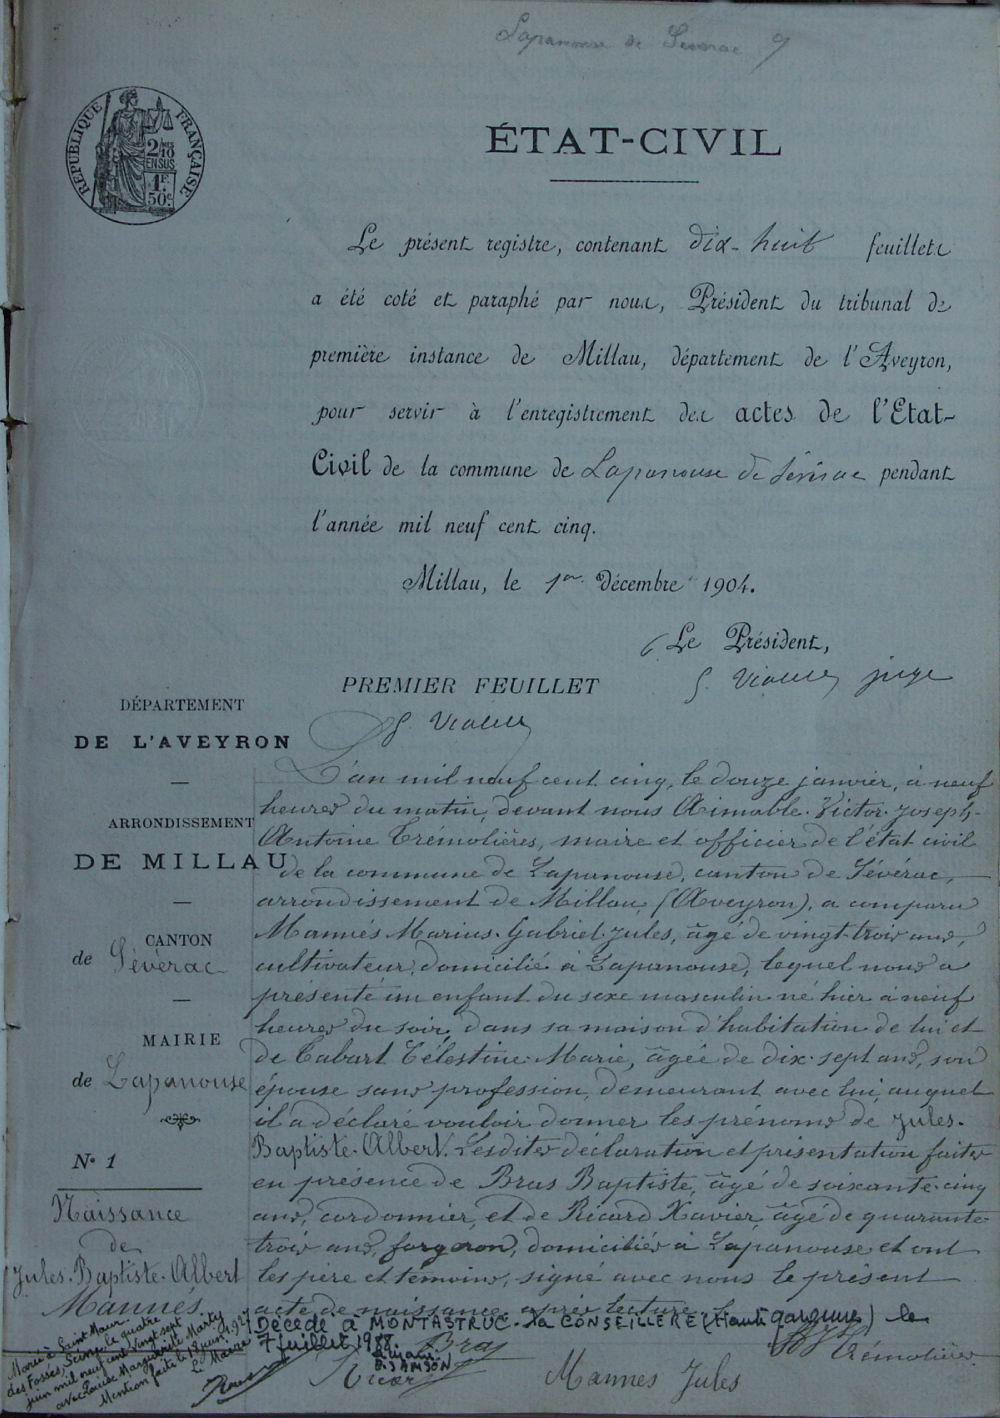 Lapanouse de Séverac 9
RÉPUBLIQUE FRANÇAISE
2/10
EN SUS
1F.
50c.
ÉTAT-CIVIL
Le présent registre, contenant dix-huit feuillets
a été coté et paraphé par nous, Président du tribunal de
première instance de Millau, département de l'Aveyron,
pour servir à l'enregistrement des actes de l'Etat-
Civil de la commune de Lapanouse de Séverac pendant
l'année mil neuf cent cinq.
Millau, le 1er Décembre 1904.
Le Président,
juge
PREMIER FEUILLET
DÉPARTEMENT
DE L'AVEYRON
ARRONDISSEMENT
DE MILLAU
CANTON
de Sévérac
MAIRIE
de Lapanouse
N° 1
Naissance
de
Jules-Baptiste-Albert
Mannés
L'an mil neuf cent cinq, le douze janvier, à neuf
heures du matin, devant nous Aimable-Victor-Joseph-
Antoine Trémolières, maire et officier de l'état civil
de la commune de Lapanouse, canton de Sévérac,
arrondissement de Millau, (Aveyron), a comparu
Mannés Marius-Gabriel-Jules, âgé de vingt-trois ans,
cultivateur, domicilié à Lapanouse, lequel nous a
présenté un enfant du sexe masculin né hier à neuf
heures du soir, dans sa maison d'habitation de lui et
de Cabart Célestine-Marie, âgée de dix-sept ans, son
épouse sans profession, demeurant avec lui, auquel
il a déclaré vouloir donner les prénoms de Jules-
Baptiste-Albert. Lesdites déclaration et présentation faites
en présence de Bras Baptiste, âgé de soixante-cinq
ans, cordonnier, et de Ricard Xavier, âgé de quarante-
trois ans, forgeron, domiciliés à Lapanouse et ont
les père et témoins, signé avec nous le présent
acte de naissance, après lecture.
Décédé à MONTASTRUC-la CONSEILLERE (Haute garonne) le
7 juillet 1988.
B. SAMSON
Bras
Ricard
Mannes Jules
Trémolières
Marié à Saint Maur
des Fossés, Seine, le quatre
juin mil neuf cent vingt sept
avec Louise Marguerite Marty
Mention faite le 13 juin 1927
Le Maire